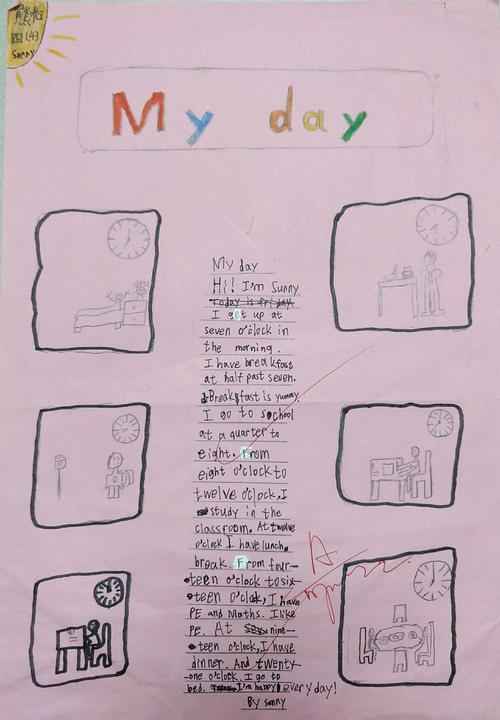 四(4)
Sunny
My day
My day
Hi! I'm Sunny
Today is friday
I get up at
seven o'clock in
the morning.
I have breakfast
at half past seven.
Breakfast is yummy
I go to school
at a quarter to
eight. From
eight o'clock to
twelve o'clock, I
study in the
classroom. At twelve
o'clock I have lunch.
break. From four-
teen o'clock to six-
teen o'clock, I have
PE and Maths. I like
PE. At nine-
teen o'clock, I have
dinner. And twenty-
-one o'clock. I go to
bed. I'm happy every day!
By sunny
A